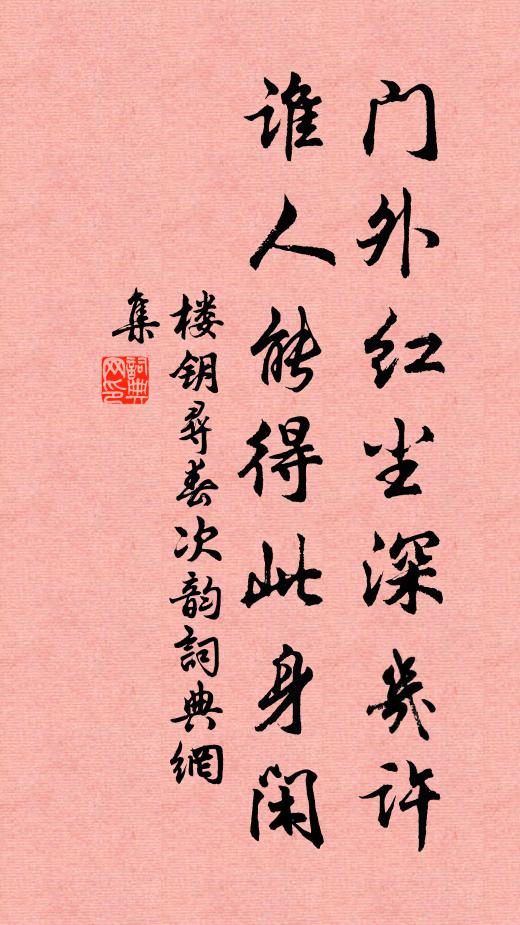 门外红尘深几许
谁人能得此身闲
楼钥寻春次韵詞典網
集
詞典
网印